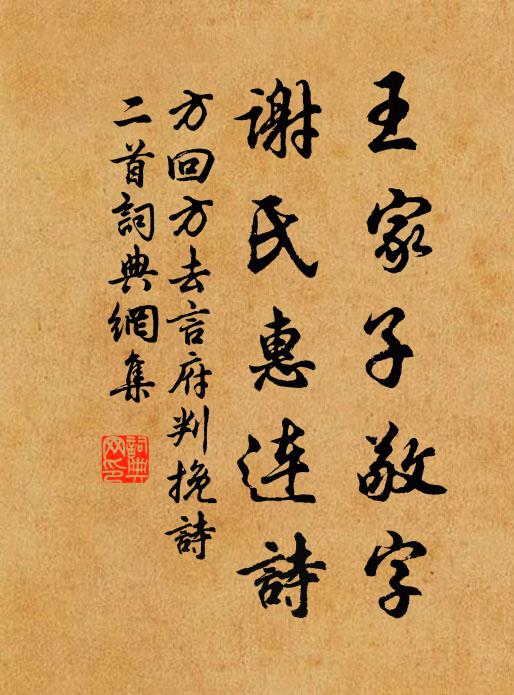 王家子敬字
谢氏惠连詩
方回方去言府判挽詩
二首詞典網集
詞典网印